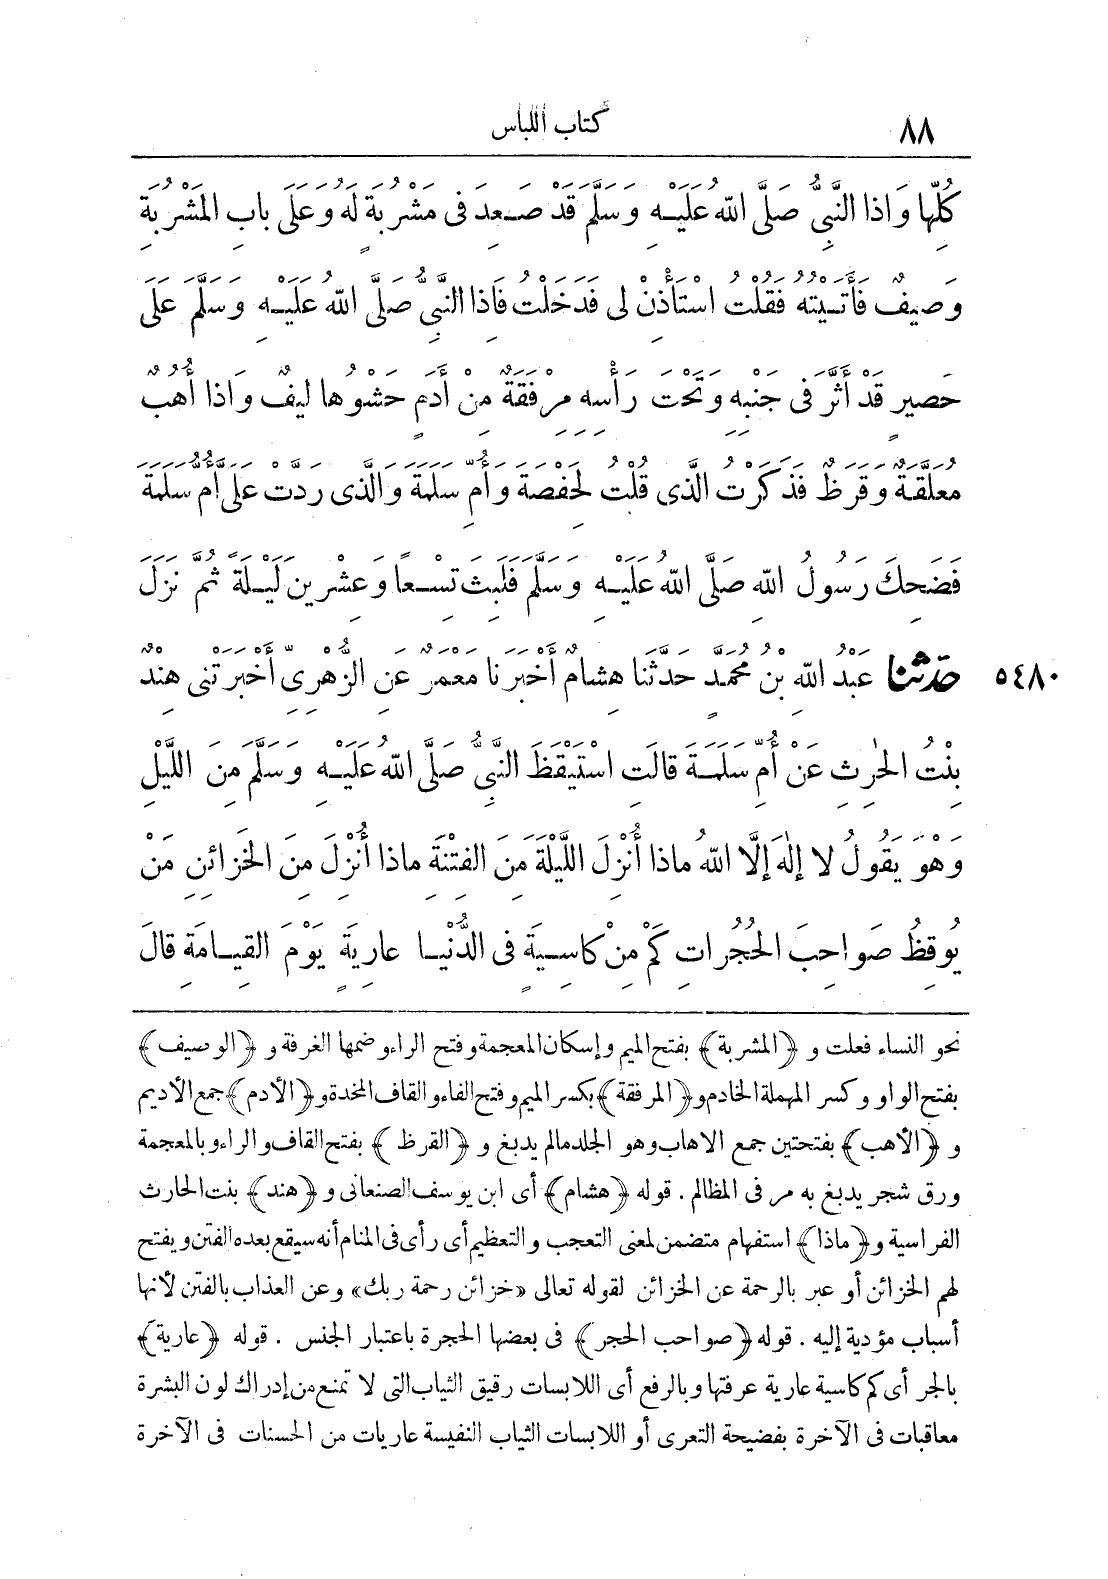 ٨٨
كتاب اللباس
كُلِّهَا وَإذا النَّبِيُّ صَلَّى اللهُ عَلَيْهِ وَسَلَّمَ قَدْ صَعِدَ فى مَشْرُبَةٍ لَهُ وَعَلَى بابِ المَشْرُبَةِ
وَصِيفٌ فَأَتَيْتُهُ فَقُلْتُ اسْتَأْذِنْ لى فَدَخَلْتُ فَاذا النَّبِيُّ صَلَّى اللهُ عَلَيْهِ وَسَلَّمَ عَلَى
حَصِيرٍ قَدْ أَثَّرَ فى جَنْبِهِ وَتَحْتَ رَأْسِهِ مِرْفَقَةٌ مِنْ أَدَمٍ حَشْوُها لِيفٌ وَاذا أُهُبٌ
مُعَلَّقَةٌ وَقَرَظٌ فَذَكَرْتُ الَّذى قُلْتُ لِحَفْصَةَ وَأُمِّ سَلَمَةَ وَالَّذى رَدَّتْ عَلَىَّ أُمُّ سَلَمَةَ
فَضَحِكَ رَسُولُ اللهِ صَلَّى اللهُ عَلَيْهِ وَسَلَّمَ فَلَبِثَ تِسْعاً وَعِشْرِينَ لَيْلَةً ثُمَّ نَزَلَ
٥٤٨٠ حَدَّثَنَا عَبْدُ اللهِ بْنُ مُحَمَّدٍ حَدَّثَنا هِشامٌ أَخْبَرَنا مَعْمَرٌ عَنِ الزُّهْرِىِّ أَخْبَرَتْنِى هِنْدٌ
بِنْتُ الحٰرِثِ عَنْ أُمِّ سَلَمَةَ قالَتِ اسْتَيْقَظَ النَّبِيُّ صَلَّى اللهُ عَلَيْهِ وَسَلَّمَ مِنَ اللَّيْلِ
وَهْوَ يَقُولُ لا إلٰهَ إلَّا اللهُ ماذا أُنْزِلَ اللَّيْلَةَ مِنَ الفِتْنَةِ ماذا أُنْزِلَ مِنَ الخَزائِنِ مَنْ
يُوقِظُ صَواحِبَ الحُجُراتِ كَمْ مِنْ كاسِيَةٍ فى الدُّنْيا عارِيَةٍ يَوْمَ القِيامَةِ قالَ
نحو النساء فعلت و ﴿المشربة﴾ بفتح الميم وإسكان المعجمة وفتح الراء وضمها الغرفة و ﴿الوصيف﴾
بفتح الواو وكسر المهملة الخادم و﴿المرفقة﴾ بكسر الميم وفتح الفاء والقاف المخدة و﴿الأدم﴾ جمع الأديم
و ﴿الأهب﴾ بفتحتين جمع الاهاب وهو الجلد مالم يدبغ و ﴿القرظ﴾ بفتح القاف والراء وبالمعجمة
ورق شجر يدبغ به مر فى المظالم . قوله ﴿هشام﴾ أى ابن يوسف الصنعانى و ﴿هند﴾ بنت الحارث
الفراسية و﴿ماذا﴾ استفهام متضمن لمعنى التعجب والتعظيم أى رأى فى المنام أنه سيقع بعده الفتن ويفتح
لهم الخزائن أو عبر بالرحمة عن الخزائن لقوله تعالى «خزائن رحمة ربك» وعن العذاب بالفتن لأنها
أسباب مؤدية إليه . قوله ﴿صواحب الحجر﴾ فى بعضها الحجرة باعتبار الجنس . قوله ﴿عارية﴾
بالجر أى كم كاسية عارية عرفتها وبالرفع أى اللابسات رقيق الثياب التى لا تمنع من إدراك لون البشرة
معاقبات فى الآخرة بفضيحة التعرى أو اللابسات الثياب النفيسة عاريات من الحسنات فى الآخرة